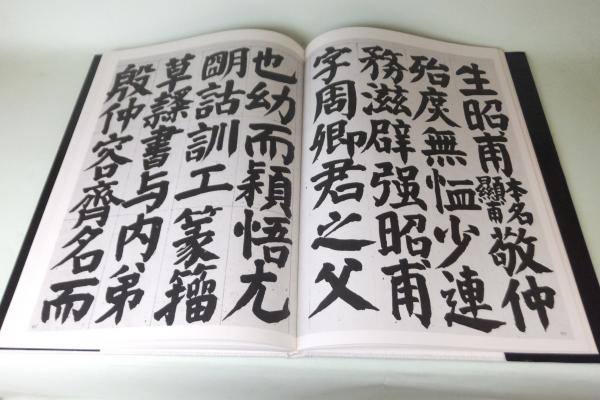 生昭甫本名顯甫敬仲
殆庶無恤少連
務滋辟强昭甫
字周卿君之父
也幼而穎悟尤
明詁訓工篆籀
草隸書与内弟
殷仲容齊名而